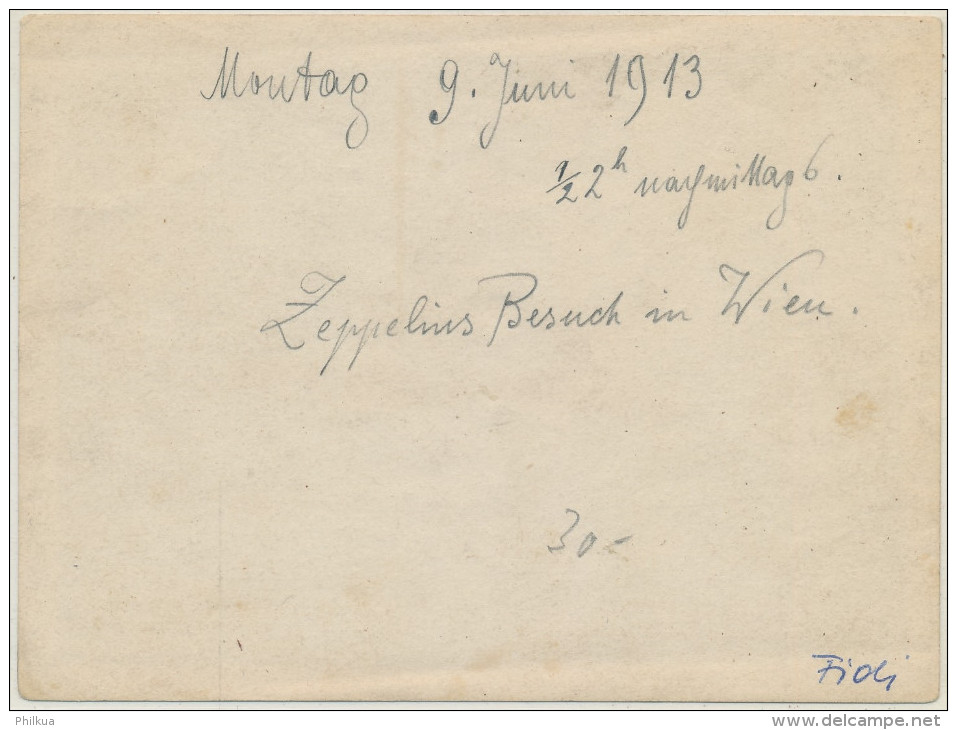 Montag 9. Juni 1913
½ 2h nachmittags.
Zeppelins Besuch in Wien.
30.-
Fidi
Philkua
www.delcampe.net